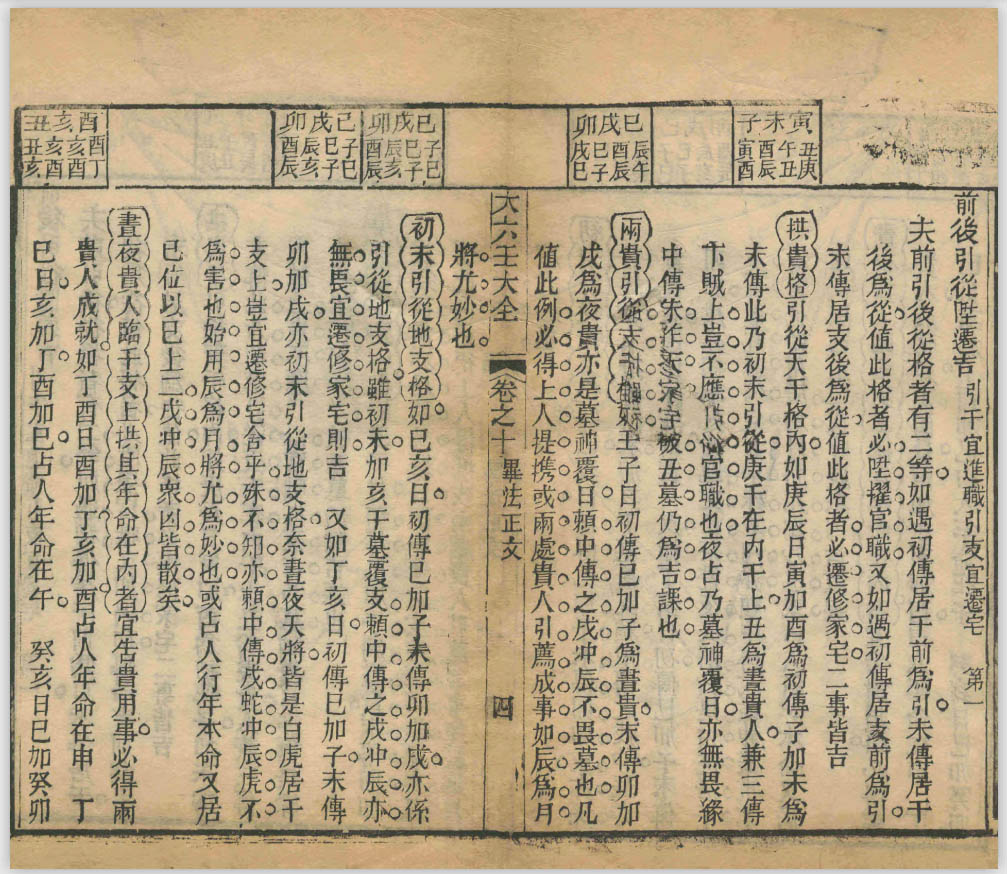 寅未子
丑午酉寅
庚丑辰酉
巳戌卯
辰酉巳戌
午辰子巳
巳戌卯
子巳辰酉
巳子亥辰
巳戌卯
子巳辰酉
巳子亥辰
酉亥丑
酉亥亥丑
丁酉酉亥
前後引從陞遷吉 引干宜進職引支宜遷宅 第一
夫前引後從格者有二等如遇初傳居干前為引末傳居干
後為從值此格者必陞擢官職又如遇初傳居支前為引
末傳居支後為從值此格者必遷修家宅二事皆吉
拱貴格引從天干格內如庚辰日寅加酉為初傳子加未為
末傳此乃初末引從庚干在內干上丑為晝貴人兼三傳
下賊上豈不應官職也夜占乃墓神覆日亦無畏緣
中傳朱雀家宅被丑墓仍為吉課也
兩貴引從天干格如壬子日初傳巳加子為晝貴末傳卯加
戌為夜貴亦是墓神覆日賴中傳之戌冲辰不畏墓也凡
值此例必得上人提携或兩處貴人引薦成事如辰為月
大六壬大全 卷之十 畢法正文 四
將尤妙也
初末引從地支格如巳亥日初傳巳加子末傳卯加戌亦係
引從地支格雖初末加亥干墓覆支賴中傳之戌冲辰亦
無畏宜遷修家宅則吉 又如丁亥日初傳巳加子末傳
卯加戌亦初末引從地支格奈晝夜天將皆是白虎居干
支上豈宜遷修宅舍乎殊不知亦賴中傳戌蛇冲辰虎不
為害也始用辰為月將尤為妙也或占人行年本命又居
巳位以巳上二戌冲辰衆凶皆散矣
晝夜貴人臨干支上拱其年命在內者宜告貴用事必得兩
貴人成就如丁酉日酉加丁亥加酉占人年命在申 丁
巳日亥加丁酉加巳占人年命在午 癸亥日巳加癸卯